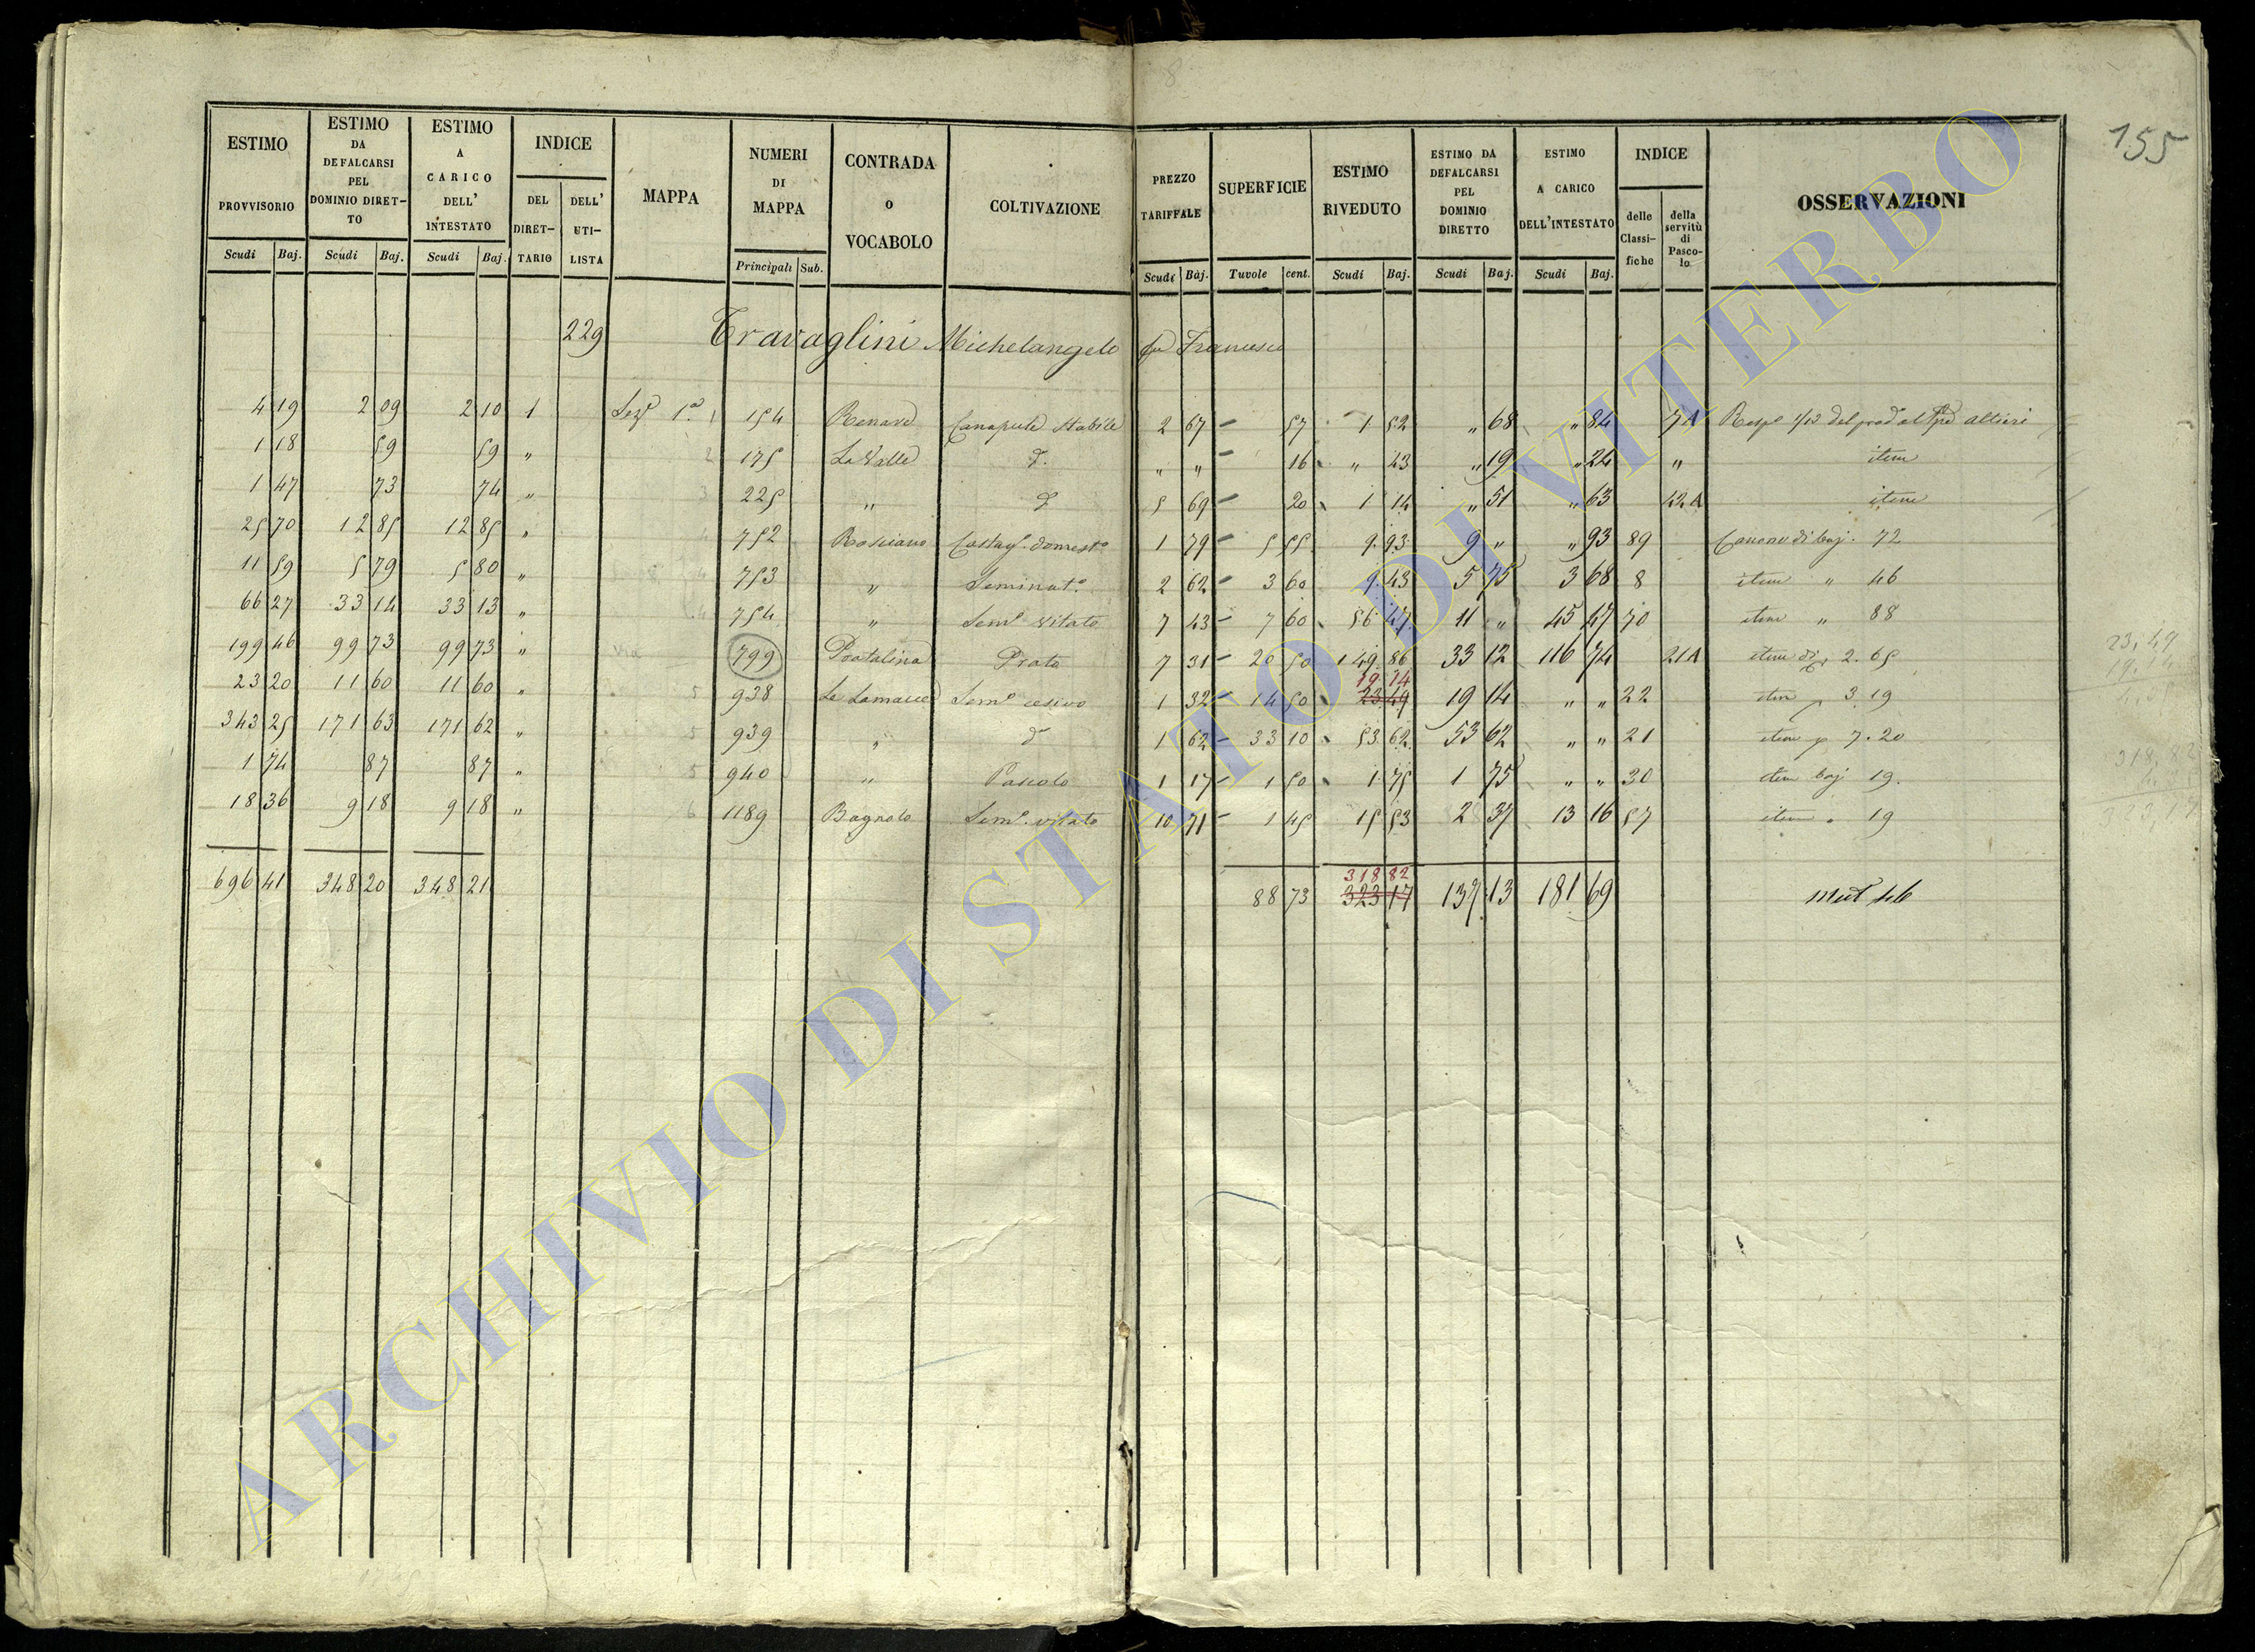 155
ESTIMO PROVVISORIO Scudi Baj. | ESTIMO DA DEFALCARSI PEL DOMINIO DIRETTO Scudi Baj. | ESTIMO A CARICO DELL' INTESTATO Scudi Baj. | INDICE DEL DIRETTARIO DELL' UTILISTA | MAPPA | NUMERI DI MAPPA Principali Sub. | CONTRADA O VOCABOLO | COLTIVAZIONE | PREZZO TARIFFALE Scudi Baj. | SUPERFICIE Tavole cent. | ESTIMO RIVEDUTO Scudi Baj. | ESTIMO DA DEFALCARSI PEL DOMINIO DIRETTO Scudi Baj. | ESTIMO A CARICO DELL'INTESTATO Scudi Baj. | INDICE delle Classifiche della servitù di Pascolo | OSSERVAZIONI
229 Travaglini Michelangelo fu Francesco
4 19 2 09 2 10 1 Sezᵉ 1ª 1 154 Renare Canapule Stabile 2 67 – 57 1 52 " 68 " 84 7A Rispᵉ 1/12 del prod al Altieri
1 18 59 59 " 2 175 La Valle d. " " – 16 " 43 " 19 " 24 " item
1 47 73 74 " 3 225 " d 5 69 – 20 1 14 " 51 " 63 42A item
25 70 12 85 12 85 " 4 752 Rosciano Castagᵒ. domestᵒ 1 79 – 5 55 9.93 9 " " 93 89 Canone di baj. 72
11 59 5 79 5 80 " 4 753 " Seminatᵒ 2 62 – 3 60 9.43 5 75 3 68 8 item " 46
66 27 33 14 33 13 " 4 754 " Semᵒ vitato 7 43 – 7 60 56 47 11 " 45 47 70 item " 88
199 46 99 73 99 73 " 799 Pratalina Prato 7 31 – 20 50 149.86 33 12 116 74 21A item di 2.65
23 20 11 60 11 60 " 5 938 Le Lamacce Semᵒ cesivo 1 32 – 14 50 19 14 23 49 19 14 " " 22 item 3.19
343 25 171 63 171 62 " 5 939 " d 1 62 – 33 10 53 62 53 62 " " 21 item 7.20
1 74 87 87 " 5 940 " Pascolo 1 17 – 1 50 1.75 1 75 " " 30 item baj 19.
18 36 9 18 9 18 " 6 1189 Bagnolo Semᵒ. vitato 10 71 – 1 45 15 53 2 37 13 16 57 item " 19
696 41 348 20 348 21 88 73 318 82 323 17 137.13 181 69
23,49
19.14
318,82
ARCHIVIO DI STATO DI VITERBO